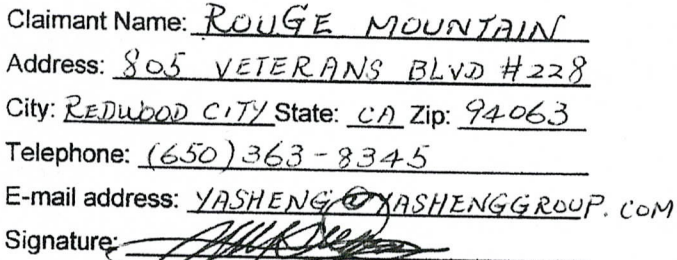 Claimant Name: ROUGE MOUNTAIN
Address: 805 VETERANS BLVD #228
City: REDWOOD CITY State: CA Zip: 94063
Telephone: (650) 363-8345
E-mail address: YASHENG@YASHENGGROUP.COM
Signature: